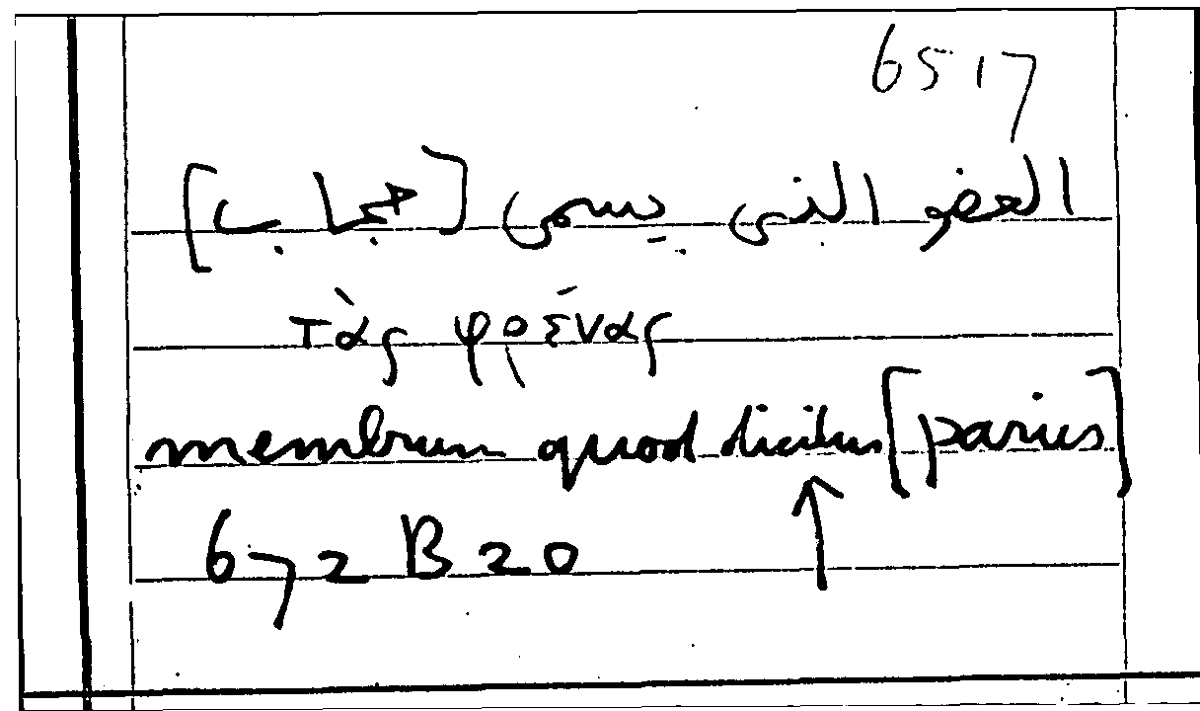 6517
العضو الذى يسمى [حجاب]
τὰς φρένας
membrum quod dicitur [paries]
672 B 20
↑